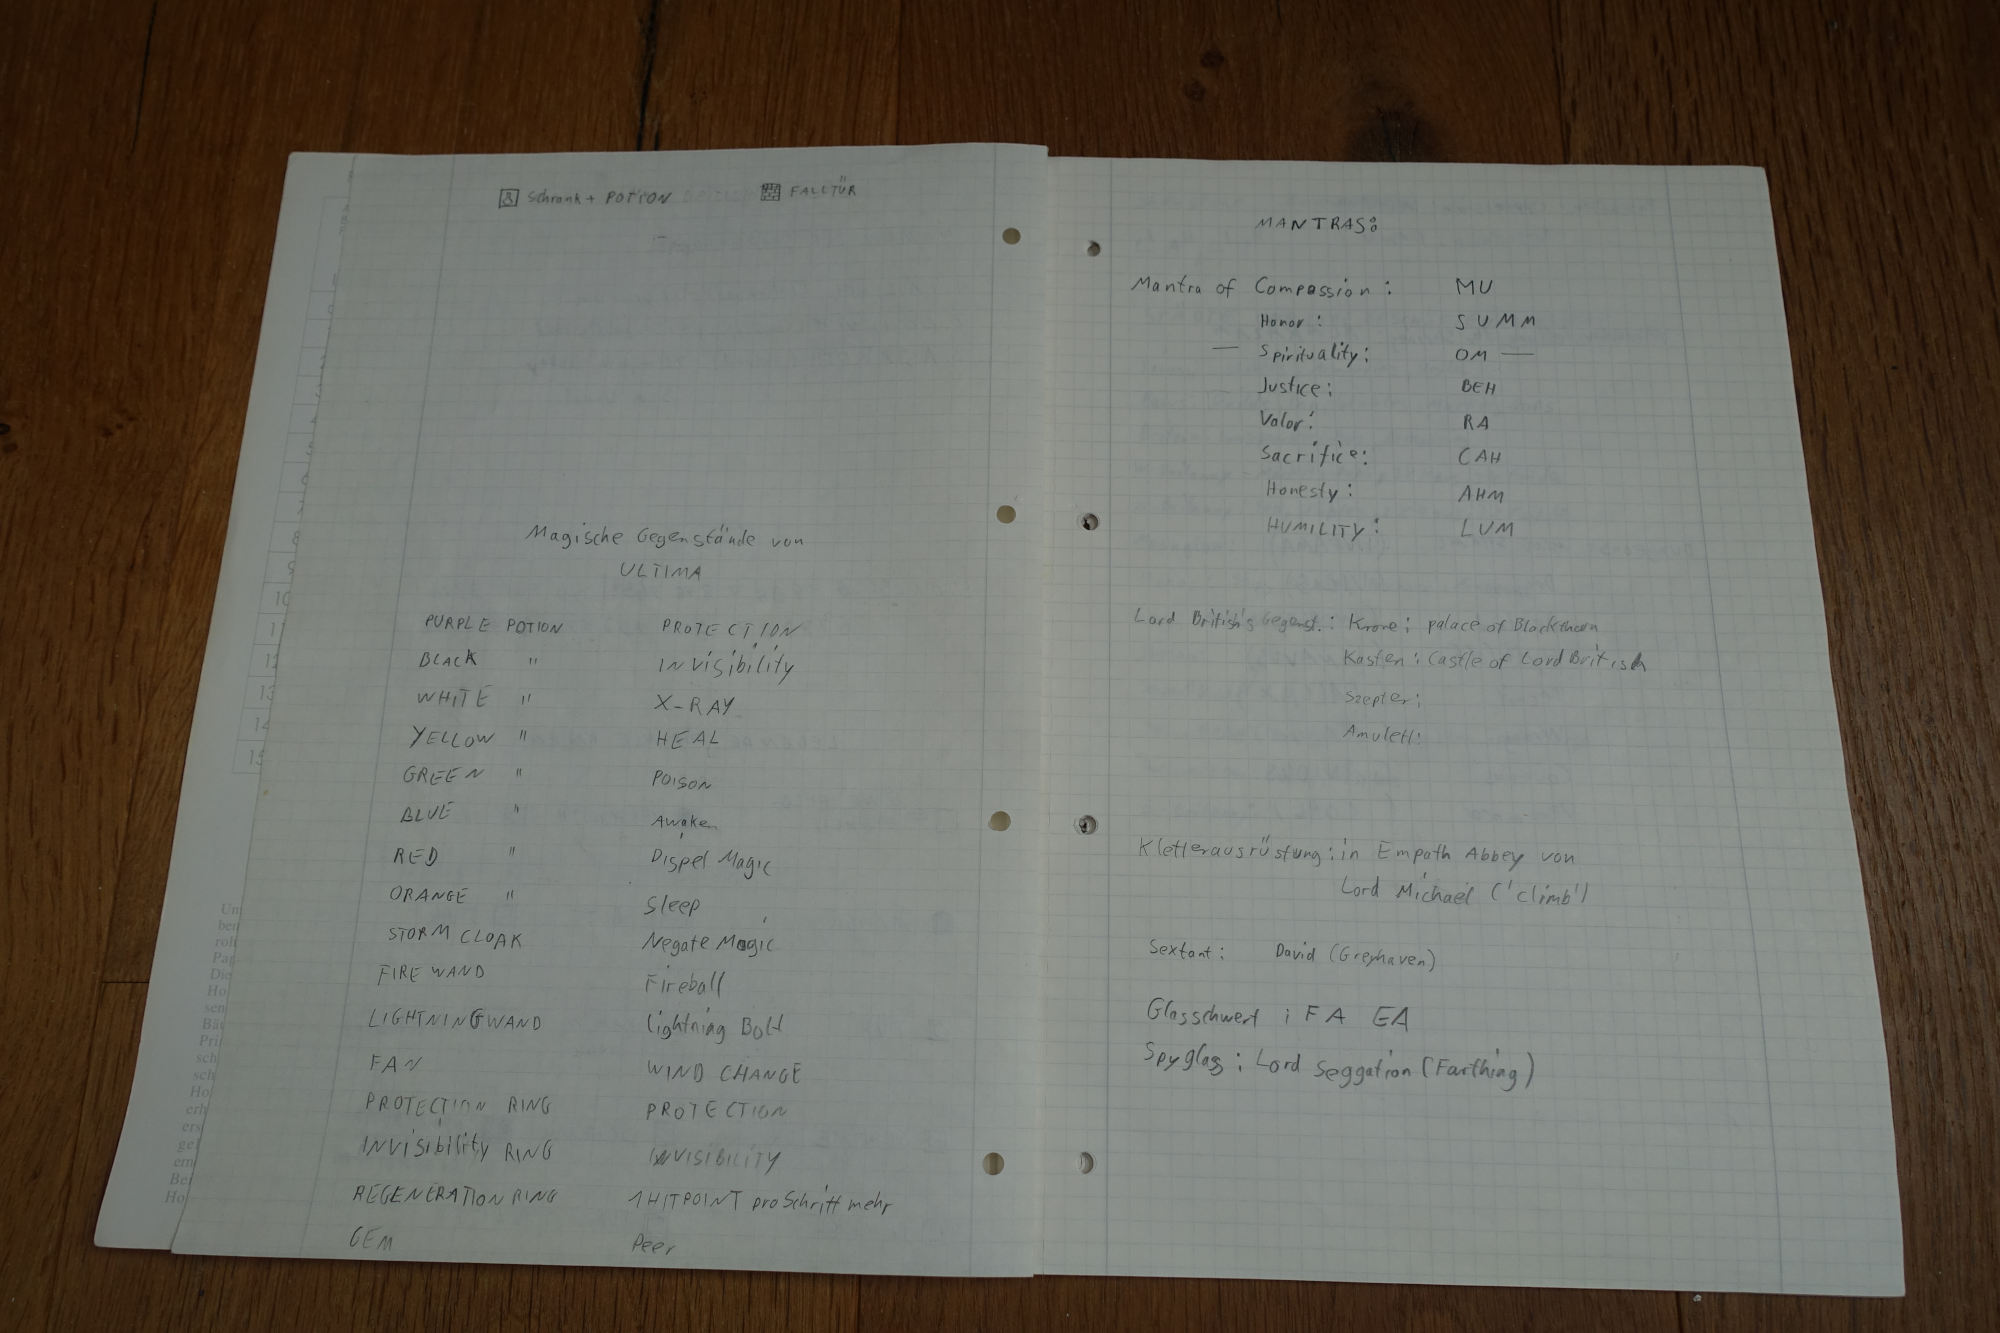 Schrank + POTION
FALLTÜR
Magische Gegenstände von
ULTIMA
PURPLE POTION PROTECTION
BLACK " INVISIBILITY
WHITE " X-RAY
YELLOW " HEAL
GREEN " POISON
BLUE " Awaken
RED " Dispel Magic
ORANGE " Sleep
STORM CLOAK Negate Magic
FIRE WAND Fireball
LIGHTNINGWAND Lightning Bolt
FAN WIND CHANGE
PROTECTION RING PROTECTION
INVISIBILITY RING INVISIBILITY
REGENERATION RING 1 HITPOINT pro Schritt mehr
GEM Peer
10
13
14
Un
ben
roh
Die
Ho
sen
Pri
sch
sch
Ho
erh
ers
em
Ho
MANTRAS:
Mantra of Compassion: MU
Honor: SUMM
— Spirituality: OM —
Justice: BEH
Valor: RA
Sacrifice: CAH
Honesty: AHM
HUMILITY: LUM
Lord British's Gegenst.: Krone: palace of Blackthorn
Kasten: Castle of Lord British
Szepter:
Amulett:
Kletterausrüstung: in Empath Abbey von
Lord Michael ('climb')
Sextant: David (Greyhaven)
Glasschwert: FA EA
Spyglass: Lord Seggation (Farthing)